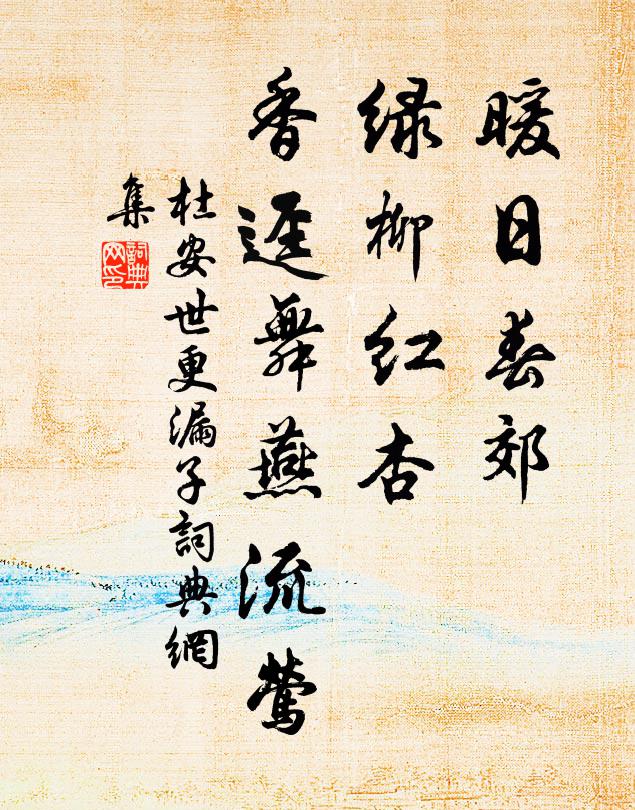 暖日春郊
绿柳红杏
香迳舞燕流莺
杜安世更漏子詞典網
集
詞典
网印